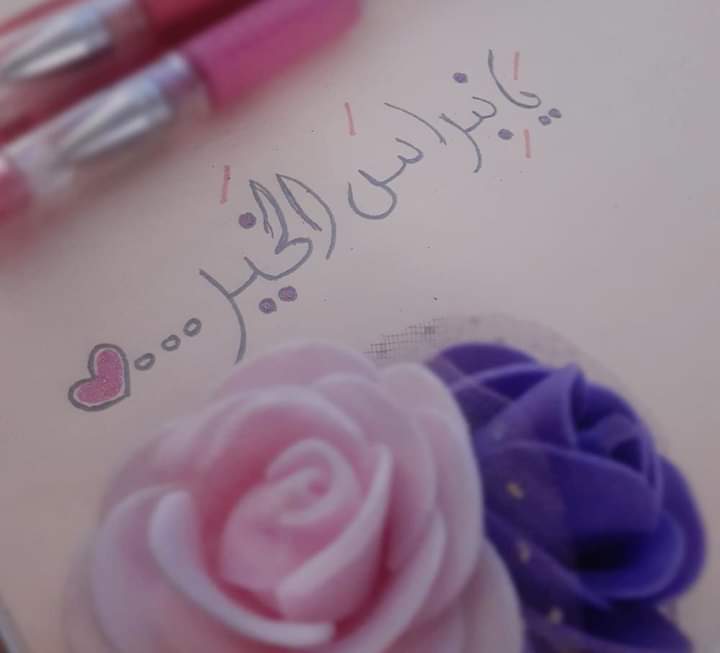 يَا نبراسَ الخَير...